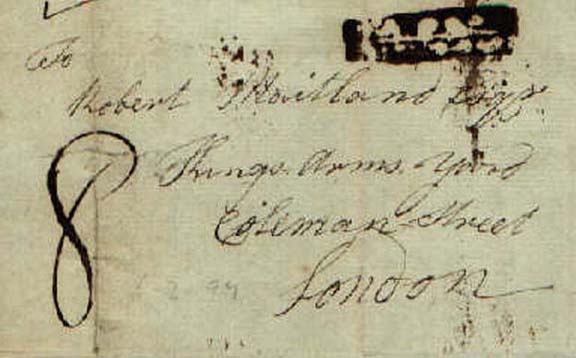 To
Robert Maitland Esqr
Kings Arms Yard
8
Coleman Street
London